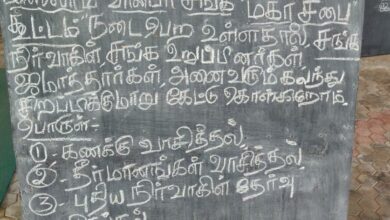 சங்க மகா சபை
கூட்டம் நடைபெற உள்ளதால், சங்க
நிர்வாகிகள், சங்க உறுப்பினர்கள்,
ஜமாத்தார்கள், அனைவரும் வந்து
சிறப்பிக்குமாறு கேட்டு கொள்கிறோம்.
பொருள்:-
① கணக்கு வாசித்தல்,
② தீர்மானங்கள் வாசித்தல்,
③ புதிய நிர்வாகிகள் தேர்வு